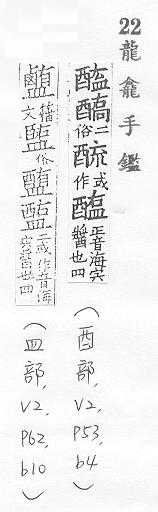 22 龍龕手鑑
二俗 或作 醢 正音海宍醬也四
(酉部, V2, P53, b4)
籀文 俗 二或作音海宍醬也四
(皿部, V2, P62, b10)